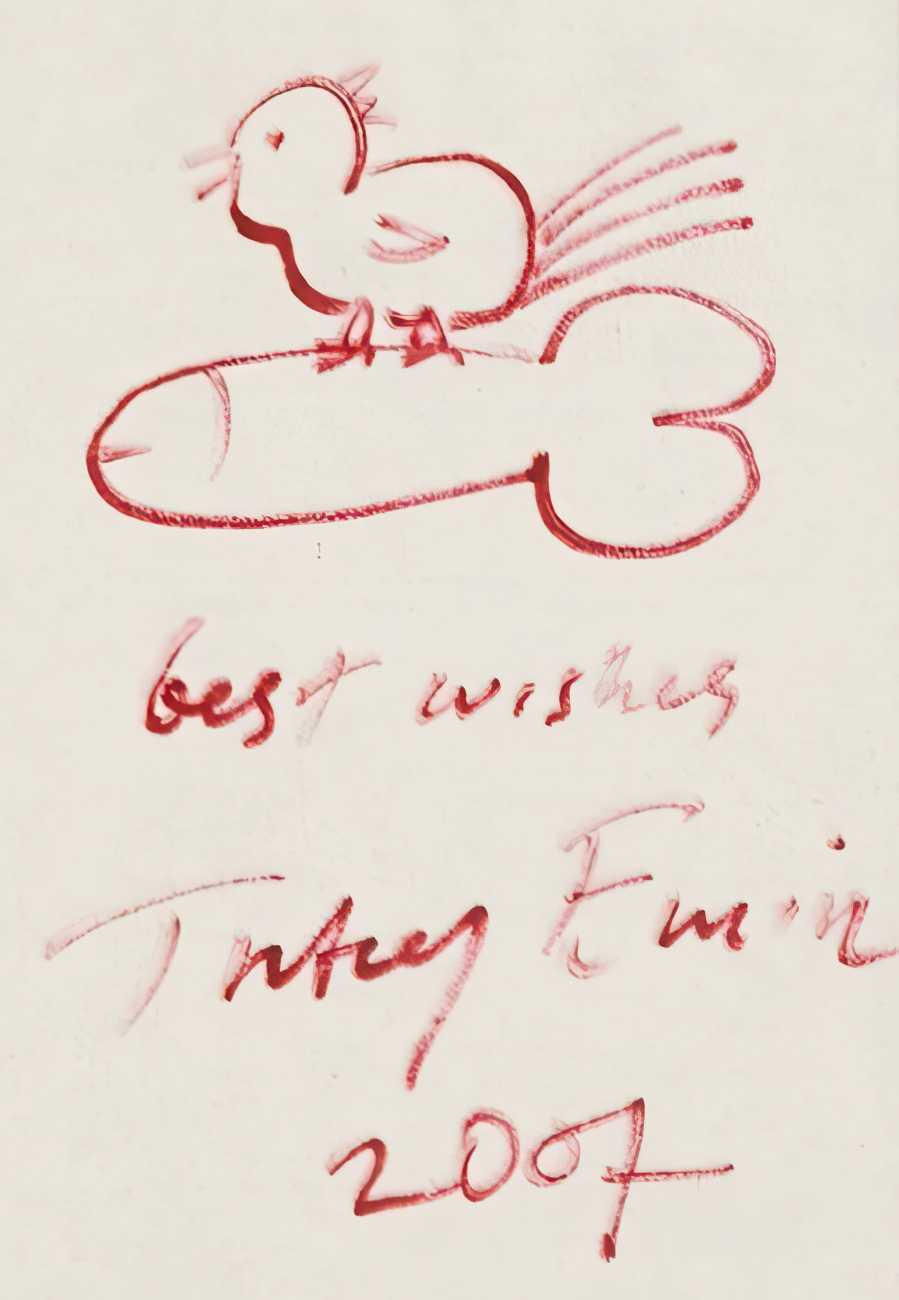 best wishes
Tracey Emin
2007